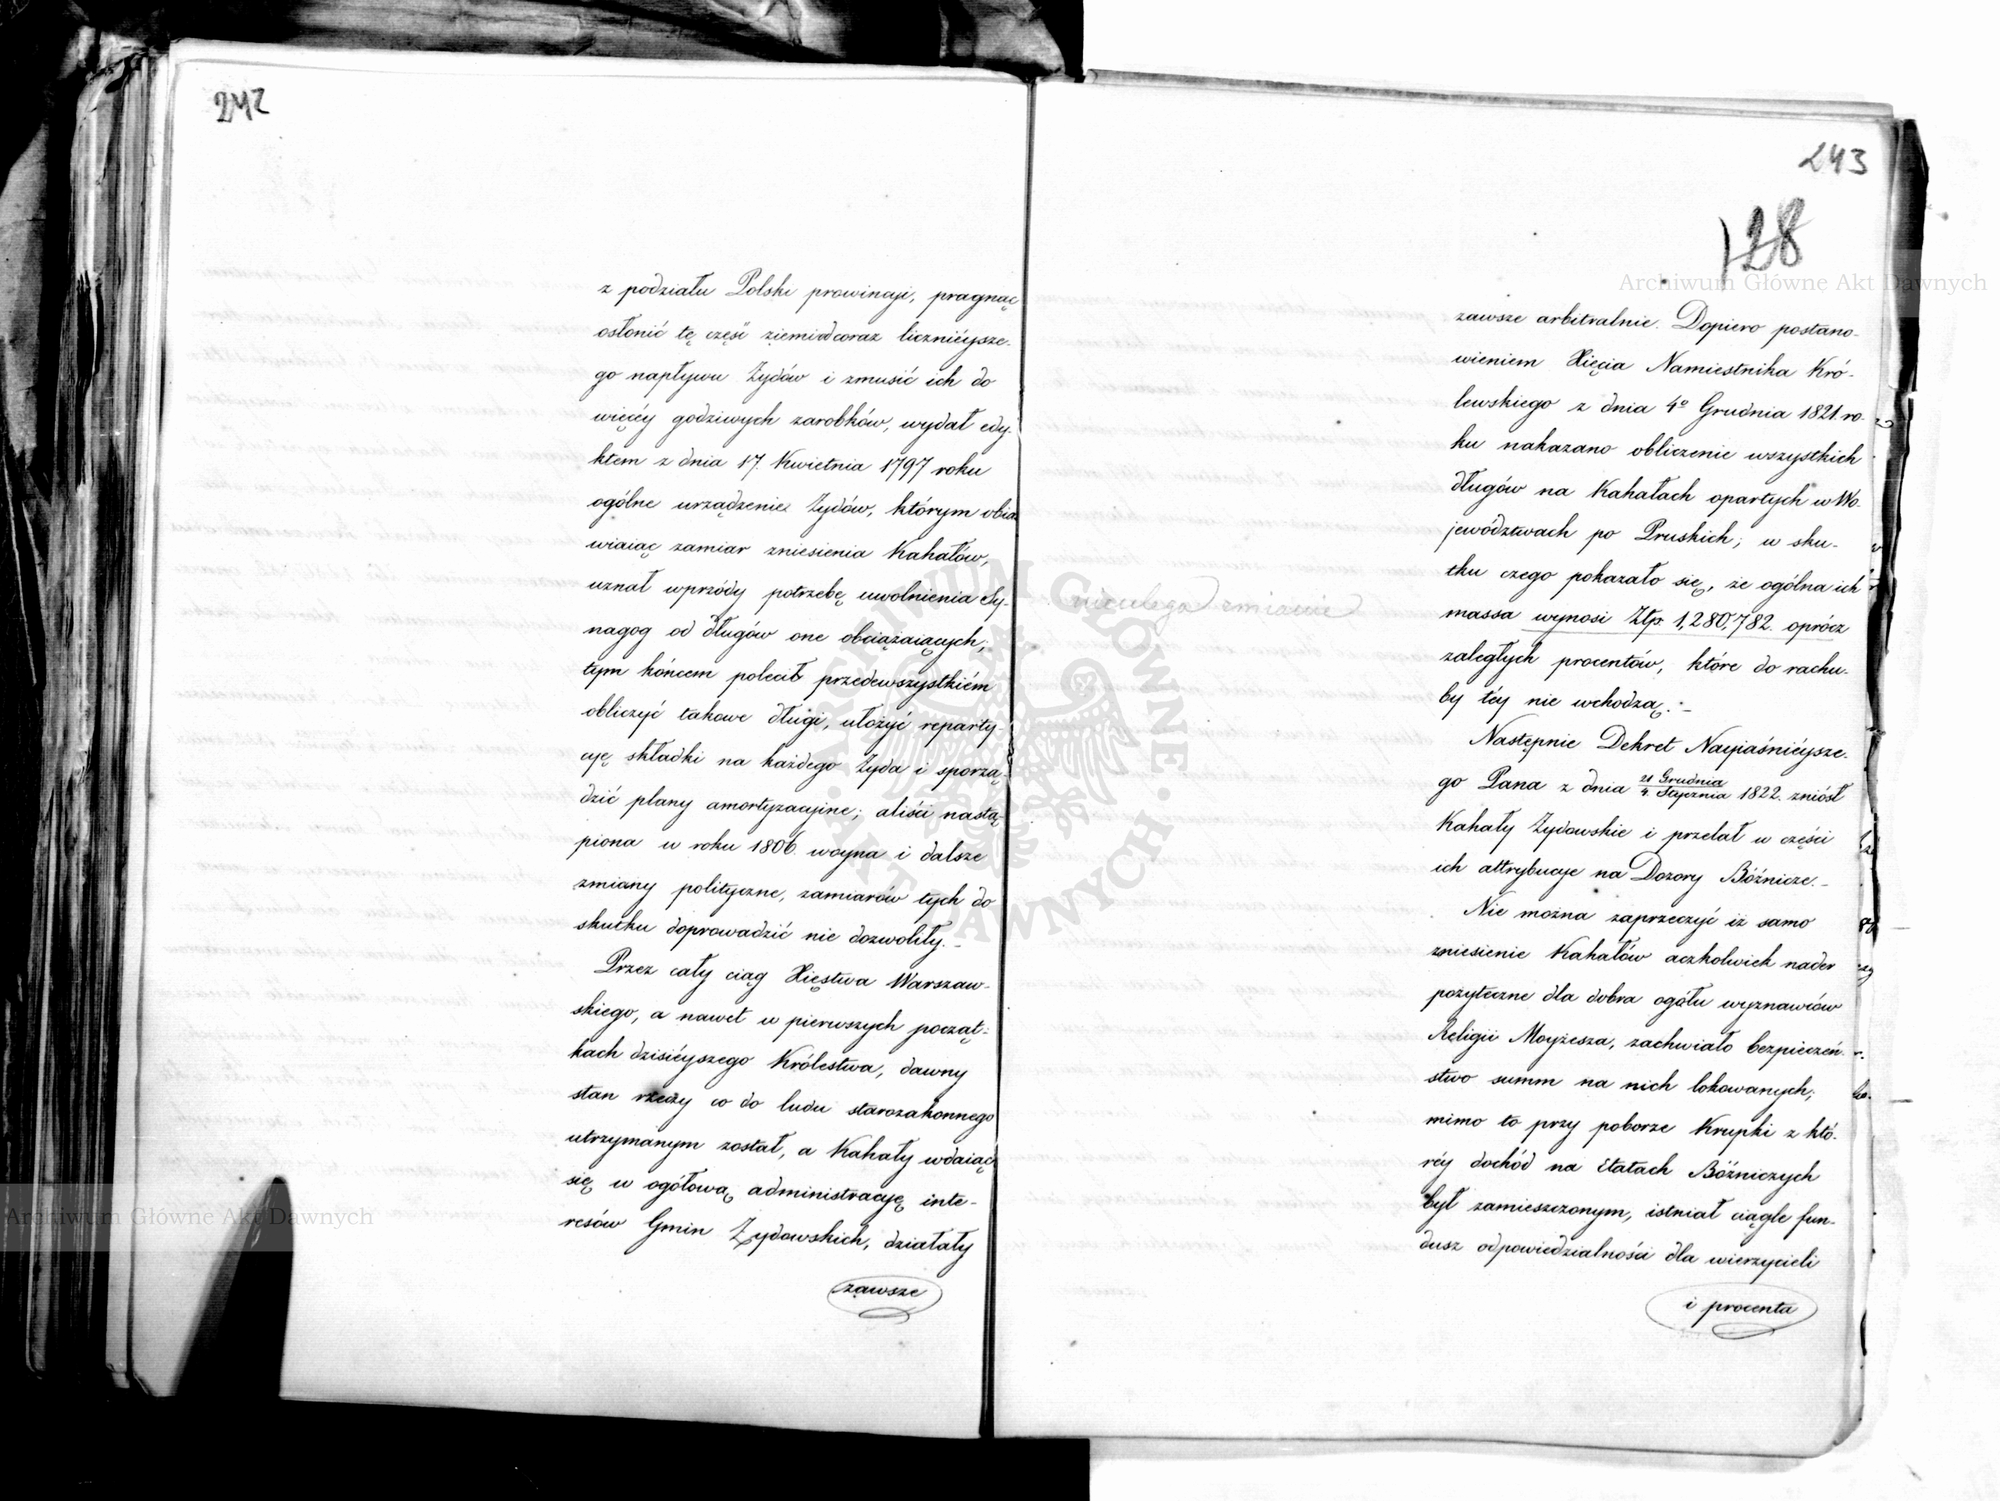 242
z podziału Polski prowincyi, pragnąc
osłonić tę część ziemi od coraz licznieysze-
go napływu Żydów i zmusić ich do
więcéy godziwych zarobków, wydał edy-
ktem z dnia 17. Kwietnia 1797 roku
ogólne urządzenie Żydów, którym obia-
wiaiąc zamiar zniesienia Kahałów,
uznał wprzódy potrzebę uwolnienia Sy-
nagog od długów one obciążaiących;
tym końcem polecił przedewszystkiém
obliczyć takowe długi, ułożyć reparty-
cyę składki na każdego Żyda i sporzą-
dzić plany amortyzacyine; aliści nastą-
piona w roku 1806. woyna i dalsze
zmiany polityczne, zamiarów tych do
skutku doprowadzić nie dozwoliły. –
Przez cały ciąg Xięstwa Warszaw-
skiego, a nawet w pierwszych począt-
kach dzisiéyszego Królestwa, dawny
stan rzeczy co do ludu starozakonnego
utrzymanym został, a Kahały wdaiąc
się w ogółową administracyę inte-
resów Gmin Żydowskich, działały
zawsze
243
128
zawsze arbitralnie. Dopiero postano-
wieniem Xięcia Namiestnika Kró-
lewskiego z dnia 4º Grudnia 1821. ro-
ku nakazano obliczenie wszystkich
długów na Kahałach opartych w Wo-
jewództwach po Pruskich; w sku-
tku czego pokazało się, że ogólna ich
massa wynosi Złp. 1,280,782. oprócz
zaległych procentów, które do rachu-
by téy nie wchodzą. –
Następnie Dekret Nayiaśniéysze-
go Pana z dnia 21 Grudnia / 4. Stycznia 1822. zniósł
Kahały Żydowskie i przelał w części
ich attrybucye na Dozory Bóźnicze. –
Nie można zaprzeczyć iż samo
zniesienie Kahałów aczkolwiek nader
pożyteczne dla dobra ogółu wyznawców
Religii Moyżesza, zachwiało bezpieczeń-
stwo summ na nich lokowanych;
mimo to przy poborze Krupki z któ-
réy dochód na Etatach Bóźniczych
był zamieszczonym, istniał ciągle fun-
dusz odpowiedzialności dla wierzycieli
i procenta
nieulega zmianie
Archiwum Główne Akt Dawnych
Archiwum Główne Akt Dawnych
ARCHIWUM GŁÓWNE · AKT DAWNYCH ·